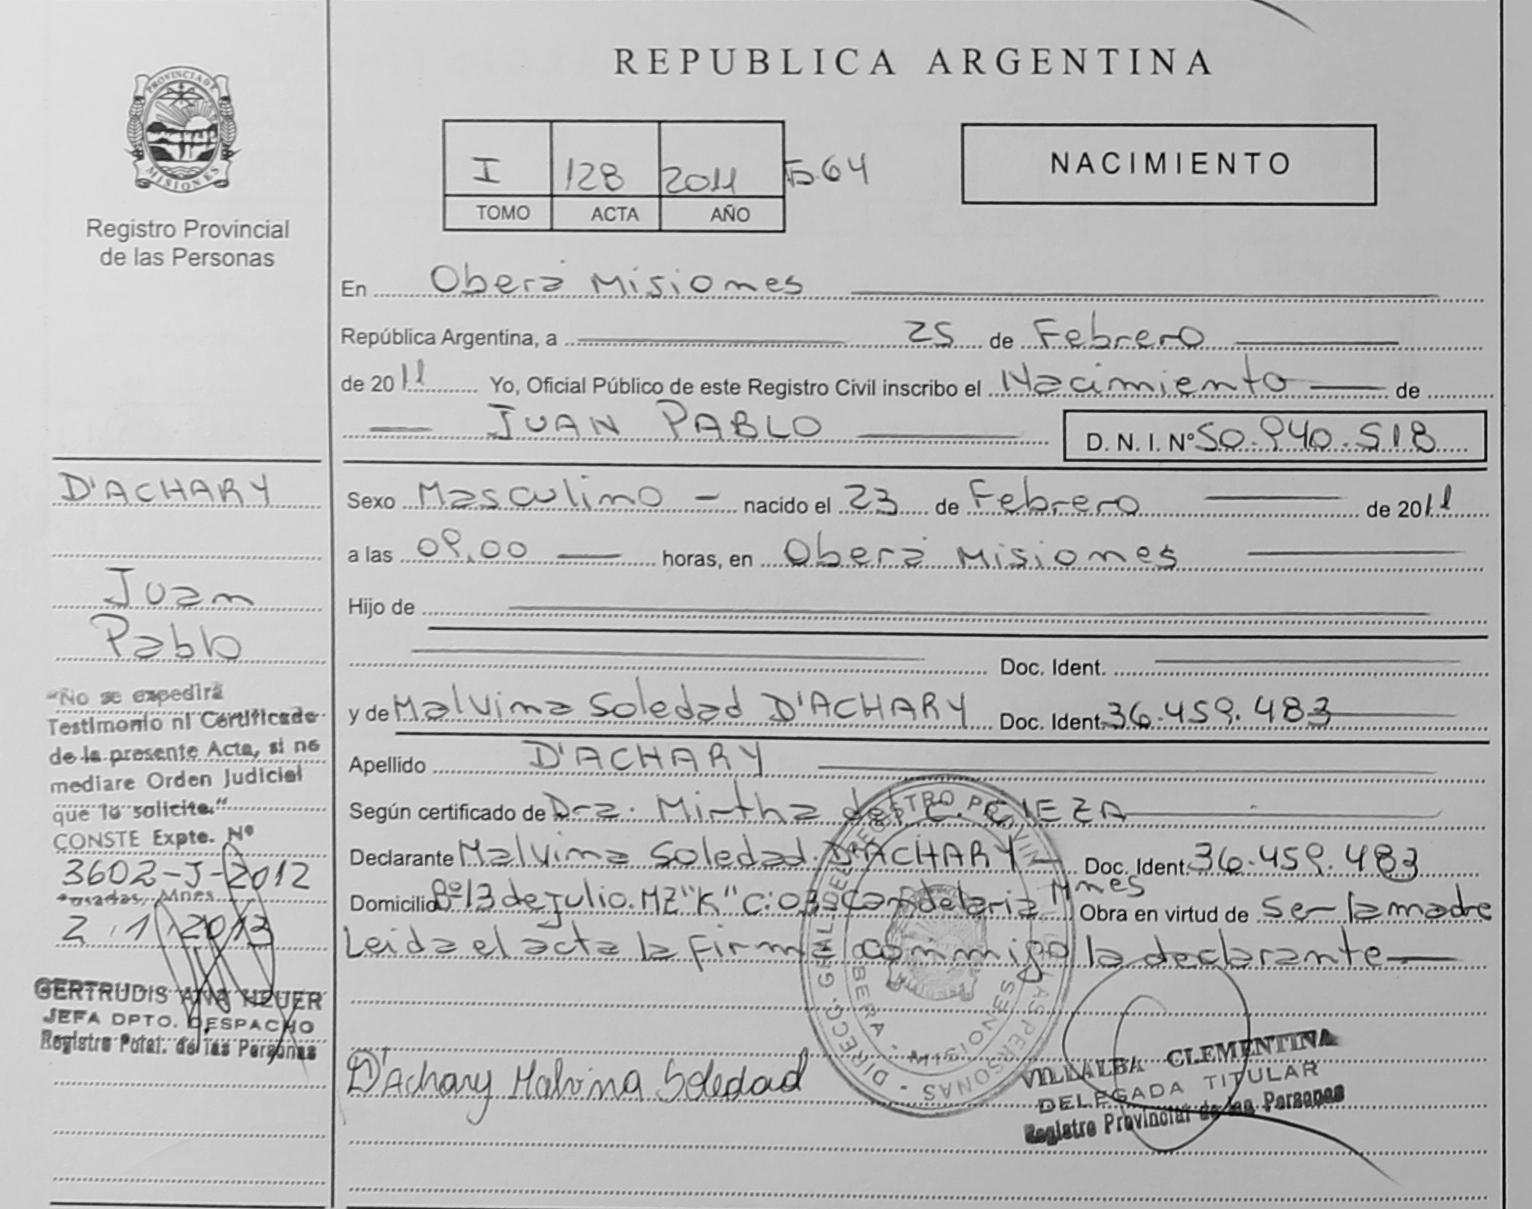 REPUBLICA ARGENTINA
PROVINCIA DE MISIONES
Registro Provincial
de las Personas
I 128 2011 F.64
TOMO ACTA AÑO
NACIMIENTO
En Oberá Misiones
República Argentina, a 25 de Febrero
de 2011 Yo, Oficial Público de este Registro Civil inscribo el Nacimiento de
JUAN PABLO D. N. I. Nº 50.940.518
Sexo Masculino - nacido el 23 de Febrero de 2011
a las 09,00 horas, en Oberá Misiones
Hijo de
Doc. Ident.
y de Malvina Soledad D'ACHARY Doc. Ident. 36.459.483
Apellido D'ACHARY
Según certificado de Dra. Mirtha del C. CIEZA
Declarante Malvina Soledad D'ACHARY Doc. Ident. 36.459.483
Domicilio Bº 13 de Julio. MZ "K" C: 03 Candelaria Mnes Obra en virtud de Ser la madre
Leida el acta la firma conmigo la declarante
D'Achary Malvina Soledad
VILLALBA CLEMENTINA
DELEGADA TITULAR
Registro Provincial de las Personas
D'ACHARY
Juan
Pablo
"No se expedirá
Testimonio ni Certificado
de la presente Acta, si no
mediare Orden Judicial
que lo solicite."
CONSTE Expte. Nº
3602-J-2012
Posadas, Mnes
2.1.2013
GERTRUDIS ANA HEUER
JEFA DPTO. DESPACHO
Registro Potal. de las Personas